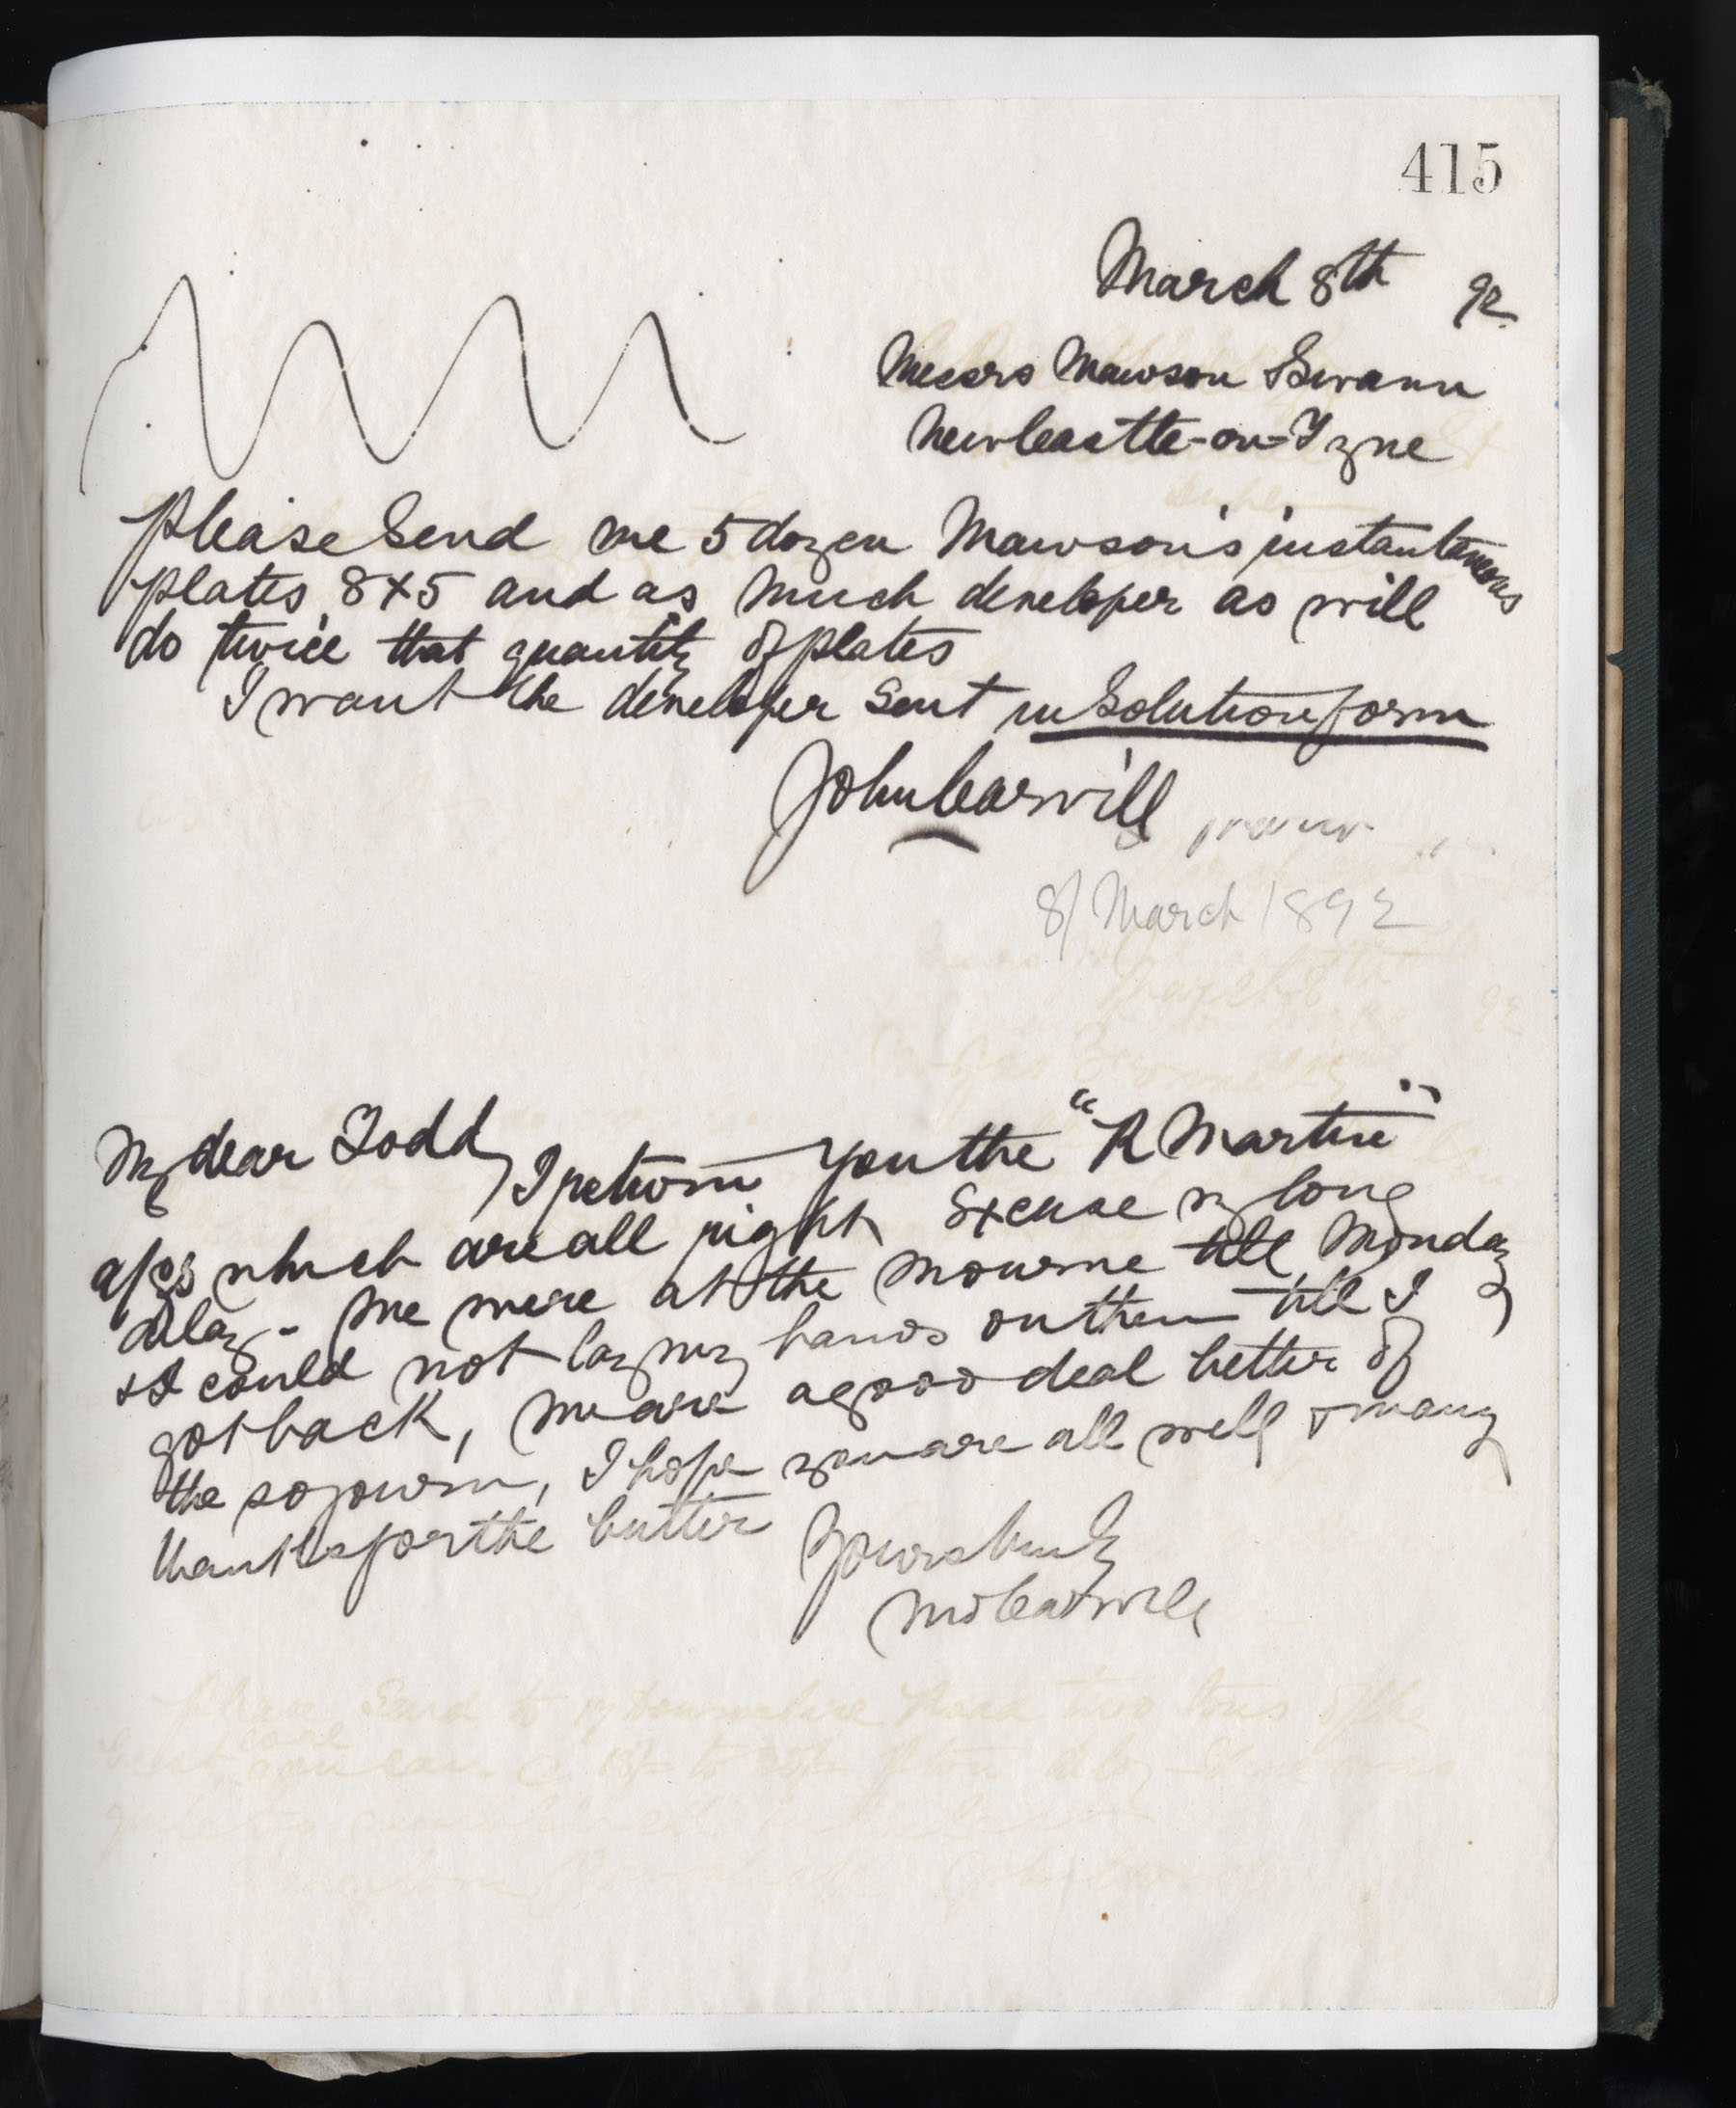 415
March 8th 92
Messrs Mawson & Swann
Newcastle-on-Tyne
Please Send me 5 dozen Mawson's instantaneous
plates 8x5 and as much developer as will
do twice that quantity of plates
I want the developer sent in Solution form
John Carvill
8/ March 1892
My dear Todd, I return you the "R Martin"
a/cs which are all right Excuse my long
delay - We were at the Mourne till Monday
& I could not lay my hands on them till I
got back, we are a good deal better of
the sojourn, I hope you are all well & many
thanks for the butter
Yours truly
Carvill